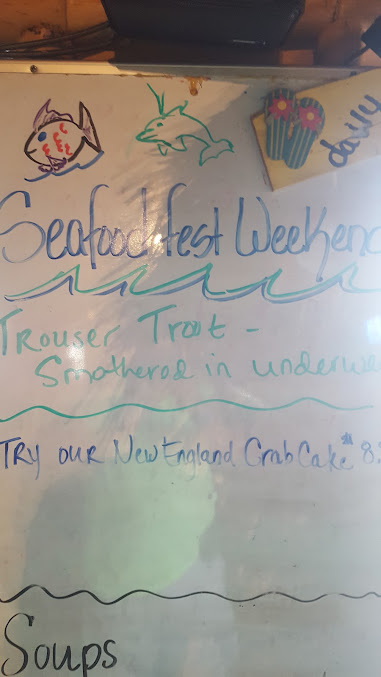 daily
Seafood fest Weekend
Trouser Trout -
Smothered in underwe
TRY OUR New England Crab Cake 8.
Soups